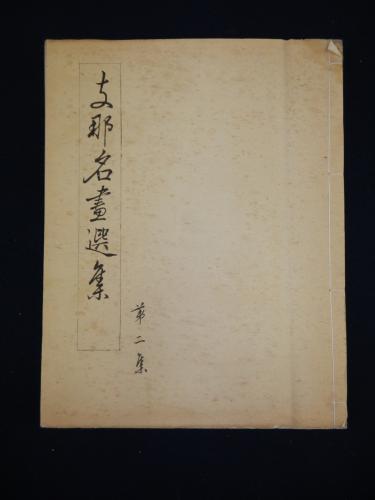 支那名畫選集
第二集